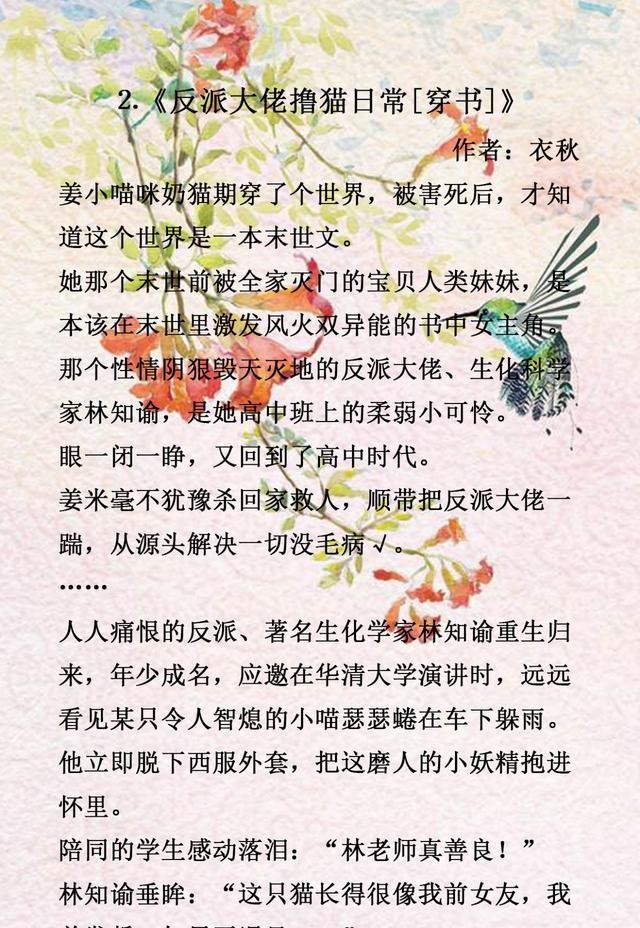 2.《反派大佬撸猫日常[穿书]》
作者：衣秋
姜小喵咪奶猫期穿了个世界，被害死后，才知
道这个世界是一本末世文。
她那个末世前被全家灭门的宝贝人类妹妹，是
本该在末世里激发风火双异能的书中女主角。
那个性情阴狠毁天灭地的反派大佬、生化科学
家林知谕，是她高中班上的柔弱小可怜。
眼一闭一睁，又回到了高中时代。
姜米毫不犹豫杀回家救人，顺带把反派大佬一
踹，从源头解决一切没毛病√。
……
人人痛恨的反派、著名生化学家林知谕重生归
来，年少成名，应邀在华清大学演讲时，远远
看见某只令人智熄的小喵瑟瑟蜷在车下躲雨。
他立即脱下西服外套，把这磨人的小妖精抱进
怀里。
陪同的学生感动落泪：“林老师真善良！”
林知谕垂眸：“这只猫长得很像我前女友，我